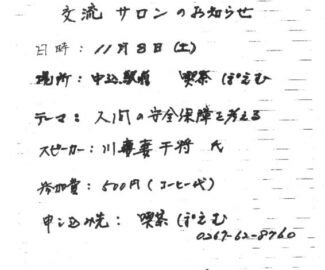 交流 サロン のお知らせ
日時: 11月8日(土)
場所: 中込駅前 喫茶 ぽえむ
テーマ: 人間の安全保障を考える
スピーカー: 川 妻 干将 氏
参加費: 500円(コーヒー代)
申し込み先: 喫茶 ぽえむ
0267-62-8760